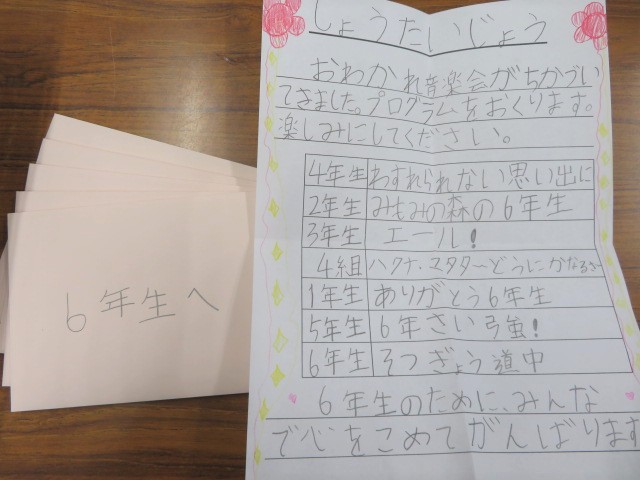 しょうたいじょう
おわかれ音楽会がちかづい
てきました。プログラムをおくります。
楽しみにしてください。
4年生 わすれられない思い出に
2年生 みもみの森の6年生
3年生 エール!
4組 ハクナ・マタタ〜どうにかなるさ〜
1年生 ありがとう6年生
5年生 6年さい強!
6年生 そつぎょう道中
6年生のために、みんな
で心をこめてがんばります
6年生へ